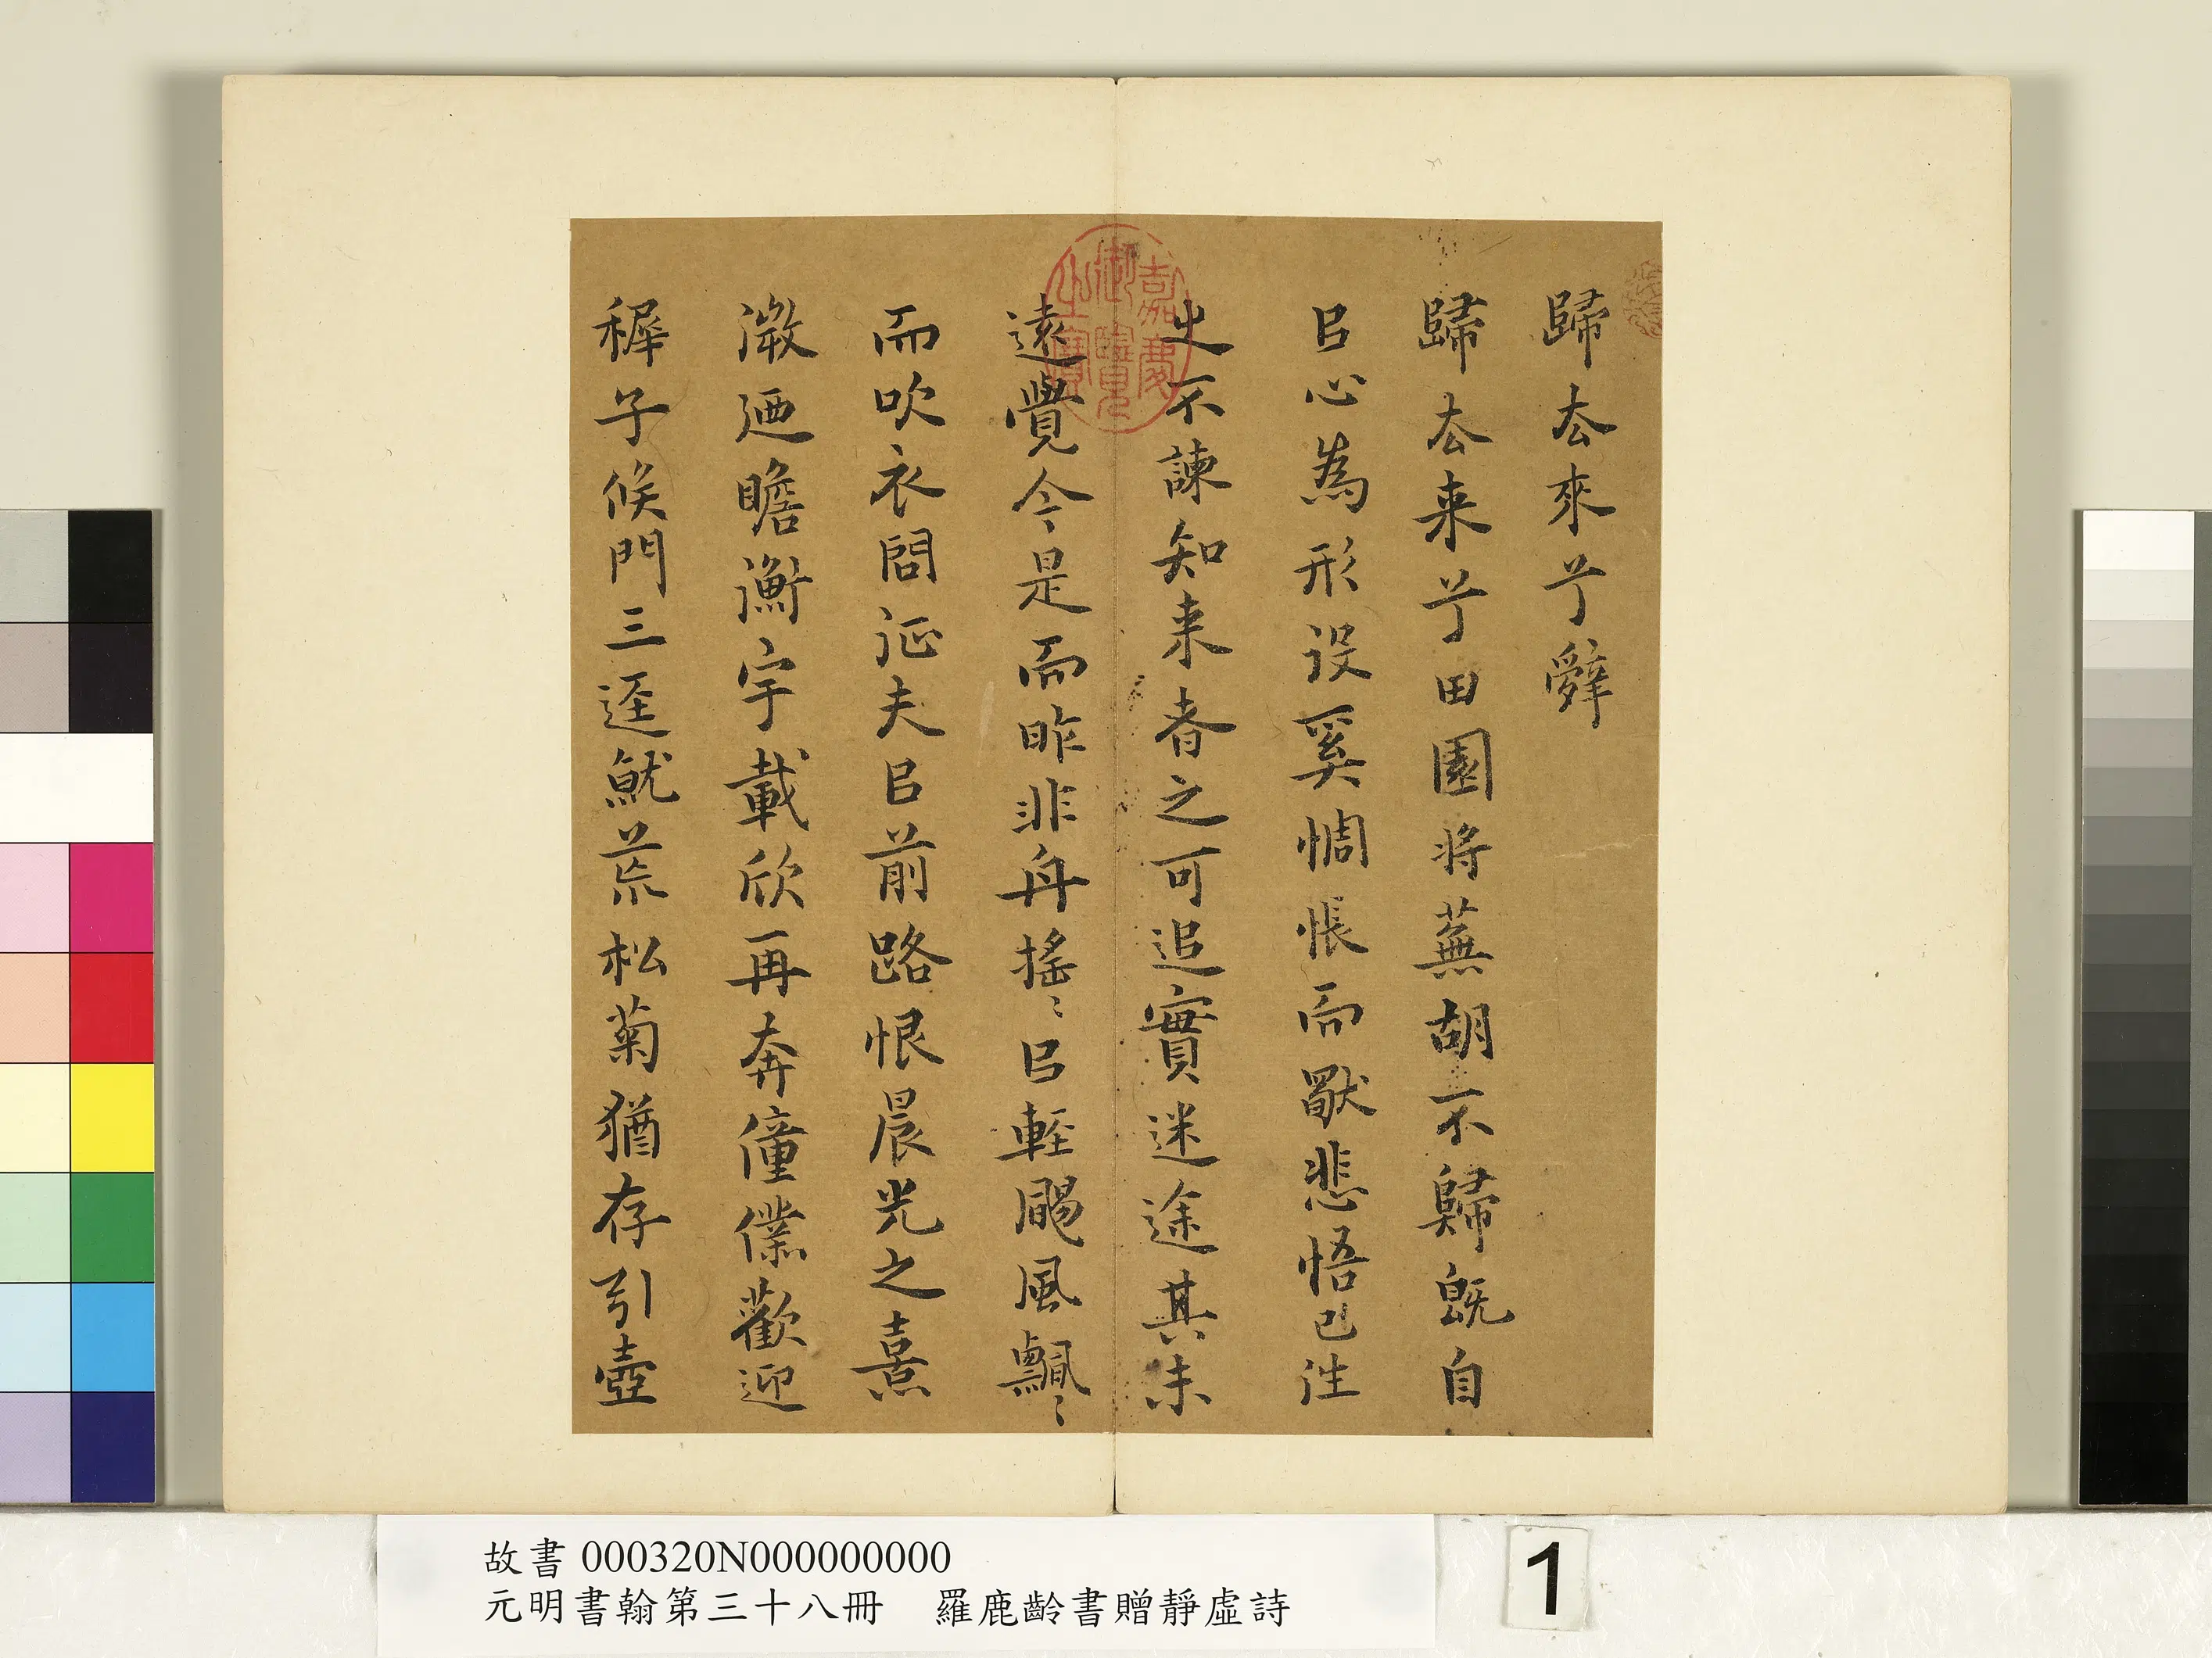 歸厺來兮辤
歸厺来兮田園将蕪胡不歸既自
㠯心為形役奚惆悵而獨悲悟已往
之不諫知来者之可追實迷途其未
遠覺今是而昨非舟搖〻㠯輕颺風飄〻
而吹衣問征夫㠯前路恨晨光之熹
微廼瞻衡宇載欣再奔僮僕歡迎
稺子候門三逕就荒松菊猶存引壺
嘉慶御覽之寶
故書 000320N000000000
元明書翰第三十八冊 羅鹿齡書贈靜虛詩
1